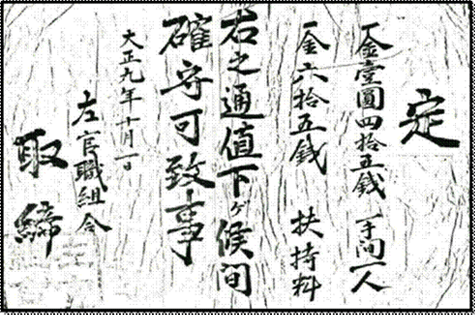 定
一金壹圓四拾五銭 手間一人
一金六拾五銭 扶持料
右之通値下ヶ候間
確守可致事
大正九年十月一日
左官職組合
取締